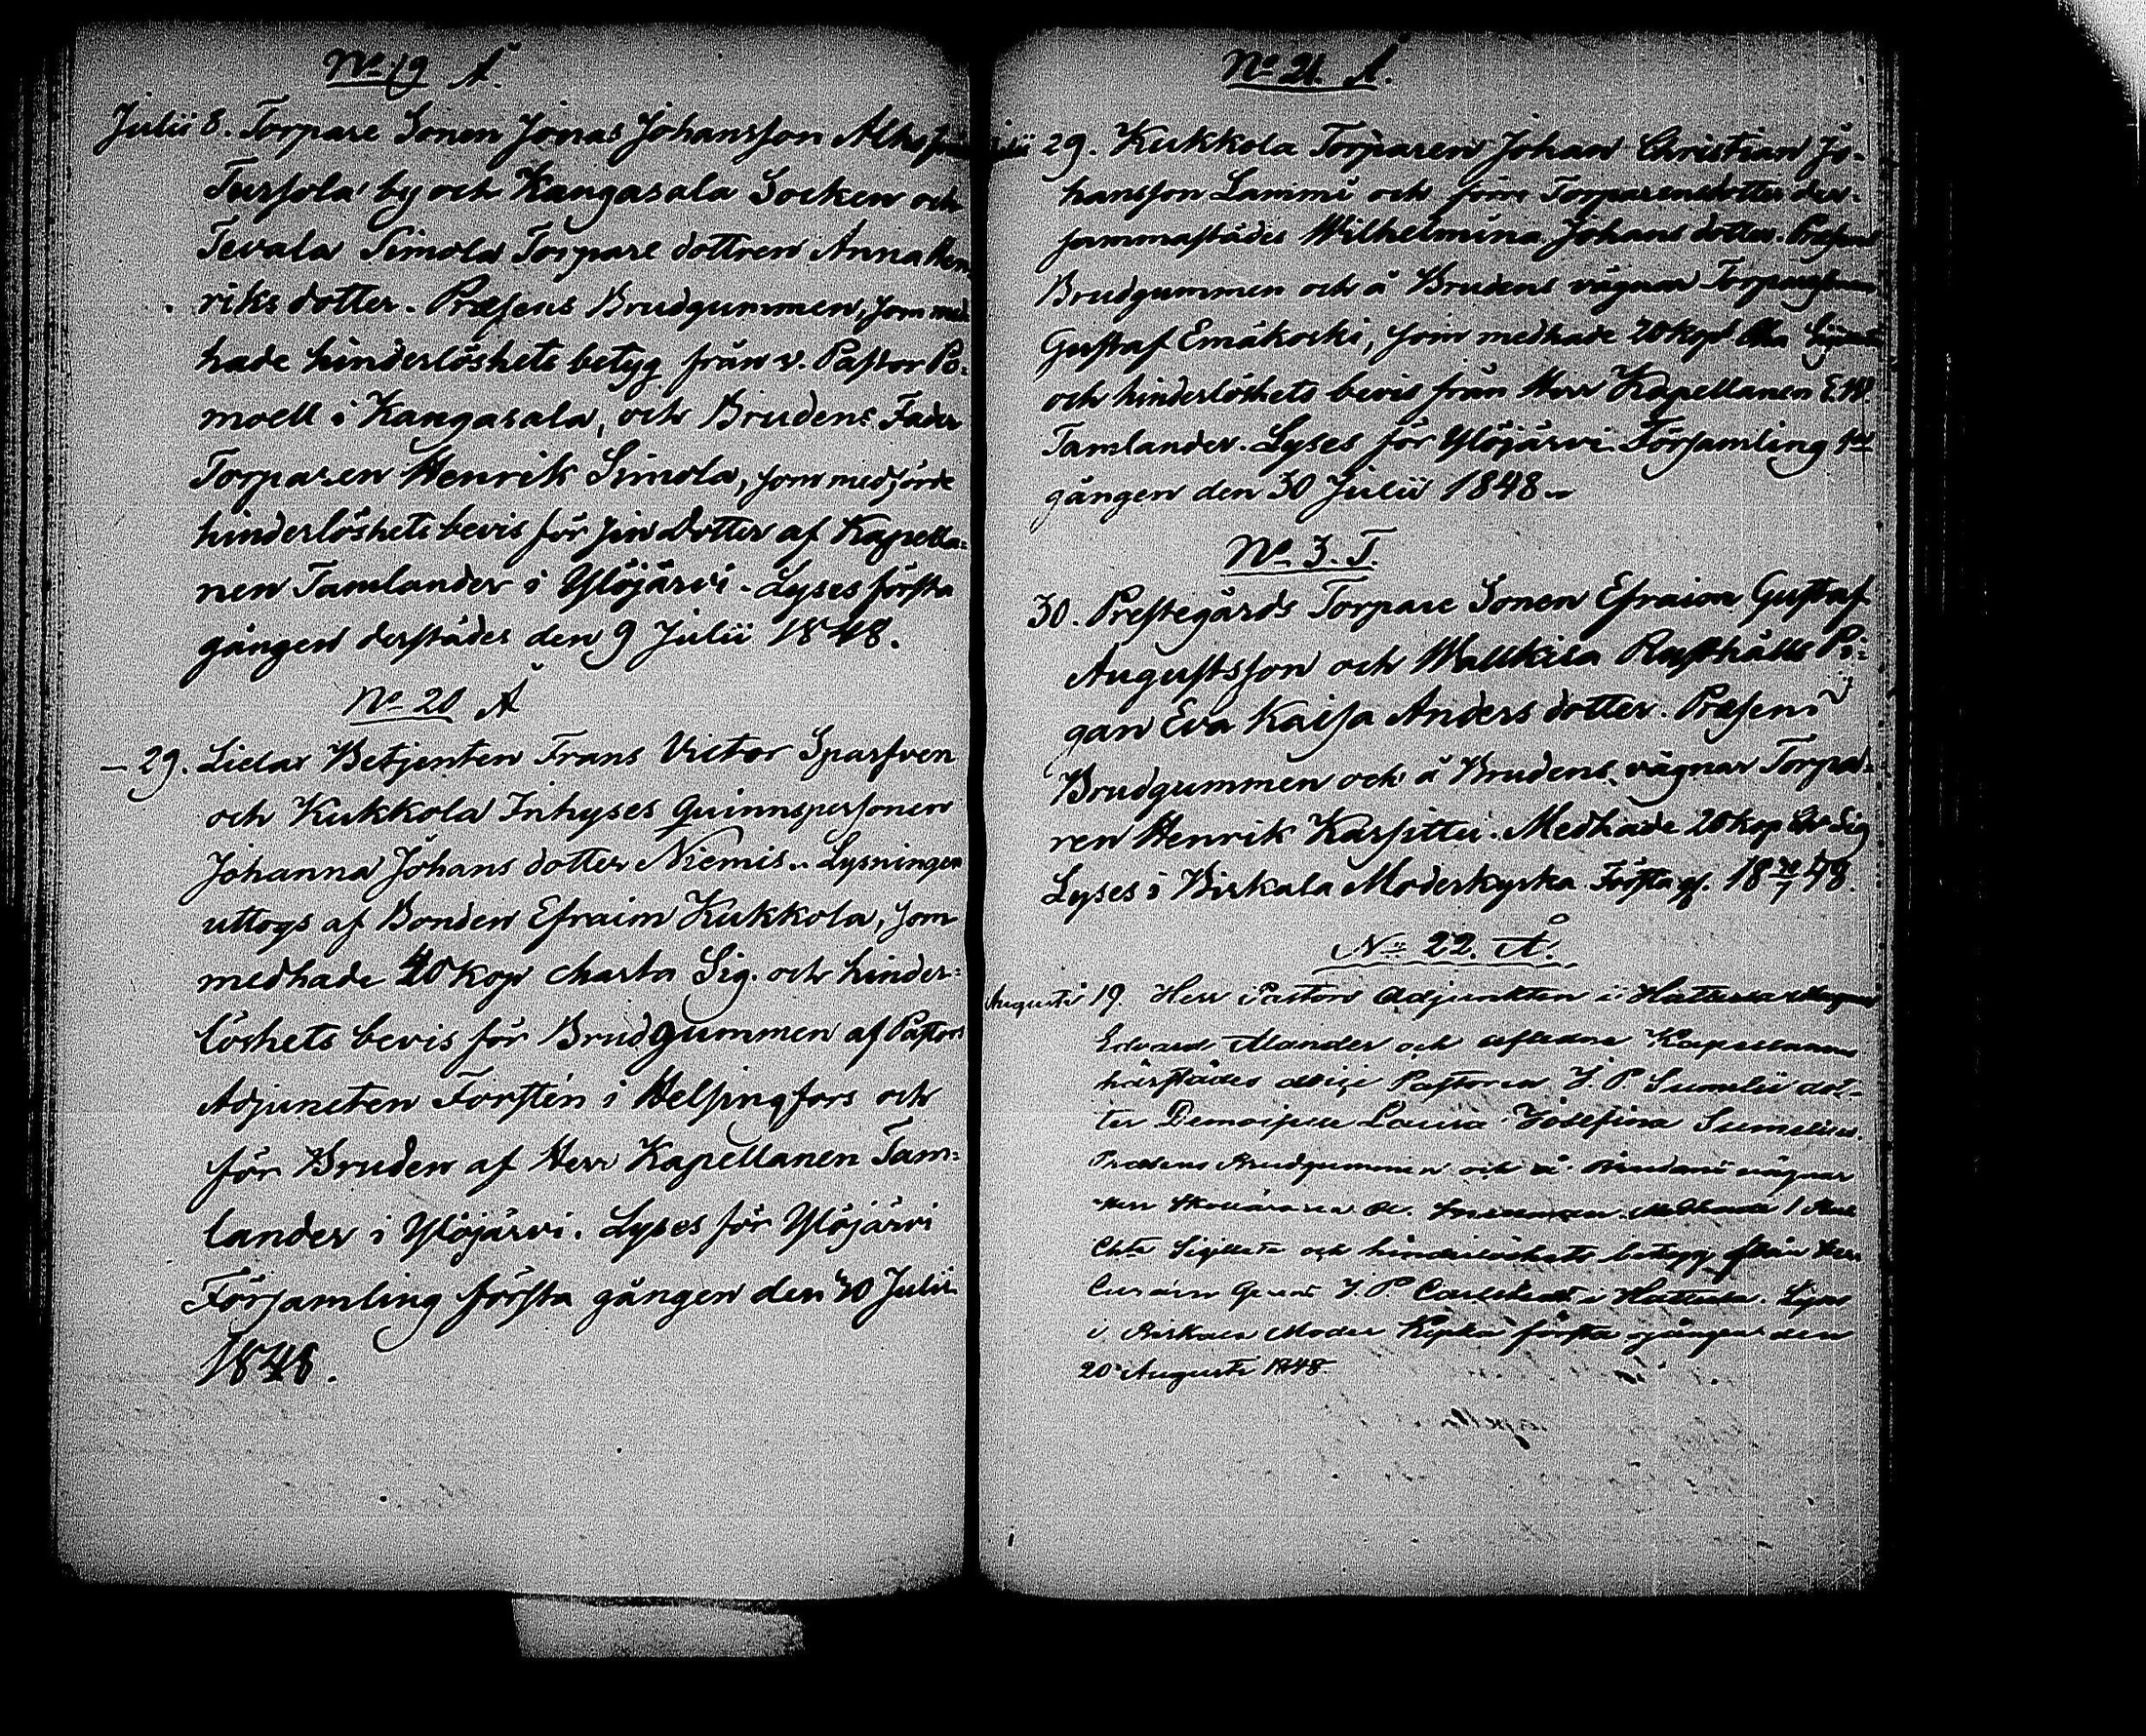 No 19 Å.
Julii 8. Torpare Sonen Jonas Johansson Alho från
Tursola by och Kangasala Socken och
Tevala Simola Torpare dottren Anna Hen
riks dotter. Præsens Brudgummen, som med
hade hinderlöshets betyg från v. Pastor Po-
moell i Kangasala, och Brudens Fader
Torparen Henrik Simola, som medförde
hinderlöshets bevis för sin dotter af Kapella-
nen Tamlander i Ylöjärvi. Lyses första
gången derstädes den 9 Julii 1848.
No 20 Å
— 29. Lielax Betjenten Frans Victor Sparfven
och Kukkola Inhyses Quinnspersonen
Johanna Johans dotter Niemis. Lysningen
uttogs af Bonden Efraim Kukkola, som
medhade 40 kop charta Sig. och hinder-
löshets bevis för Brudgummen af Pastors
Adjuncten Forstén i Helsingfors och
för Bruden af Herr Kapellanen Tam-
lander i Ylöjärvi. Lyses för Ylöjärvi
Församling första gången den 30 Julii
1848.
No 21. Å.
Julii 29. Kukkola Torparen Johan Christian Jo-
hansson Lammi och förre Torparensdotter der-
sammastädes Wilhelmina Johans dotter. Præsens
Brudgummen och å Brudens vägnar Torparesonen
Gustaf Emäkoski, som medhade 20 kop Cha
och hinderlöshets bevis från Herr Kapellanen E.W.
Tamlander. Lyses för Ylöjärvi Församling 1sta
gången den 30 Julii 1848.
No 3. T.
30. Prestegårds Torpare Sonen Efraim Gustaf
Augustsson och Mattkisa Rusthålls Pi-
gan Eva Kaisa Anders dotter. Præsens
Brudgummen och å Brudens vägnar Torpa-
ren Henrik Karsittu. Medhade 20 kop Sig
Lyses i Birkala Moderkyrka Första g. 18 30/7 48.
No 22. Å.
Augusti 19. Herr Pastors Adjunkten i Hattula Magnus
Edvard Alander och aflidne Kapellanen
härstädes Pastoren J P Sumelii dot-
ter Demoiselle Lovisa Josefina Sumelius.
Præsens Brudgummen och å Brudens vägnar
Herr Medhade 1
Cha Sigillata och hinderlöshets betyg från Herr
J. P. i Hattula. Lyses
i Birkala Moder Kyrka första gången den
20 Augusti 1848.